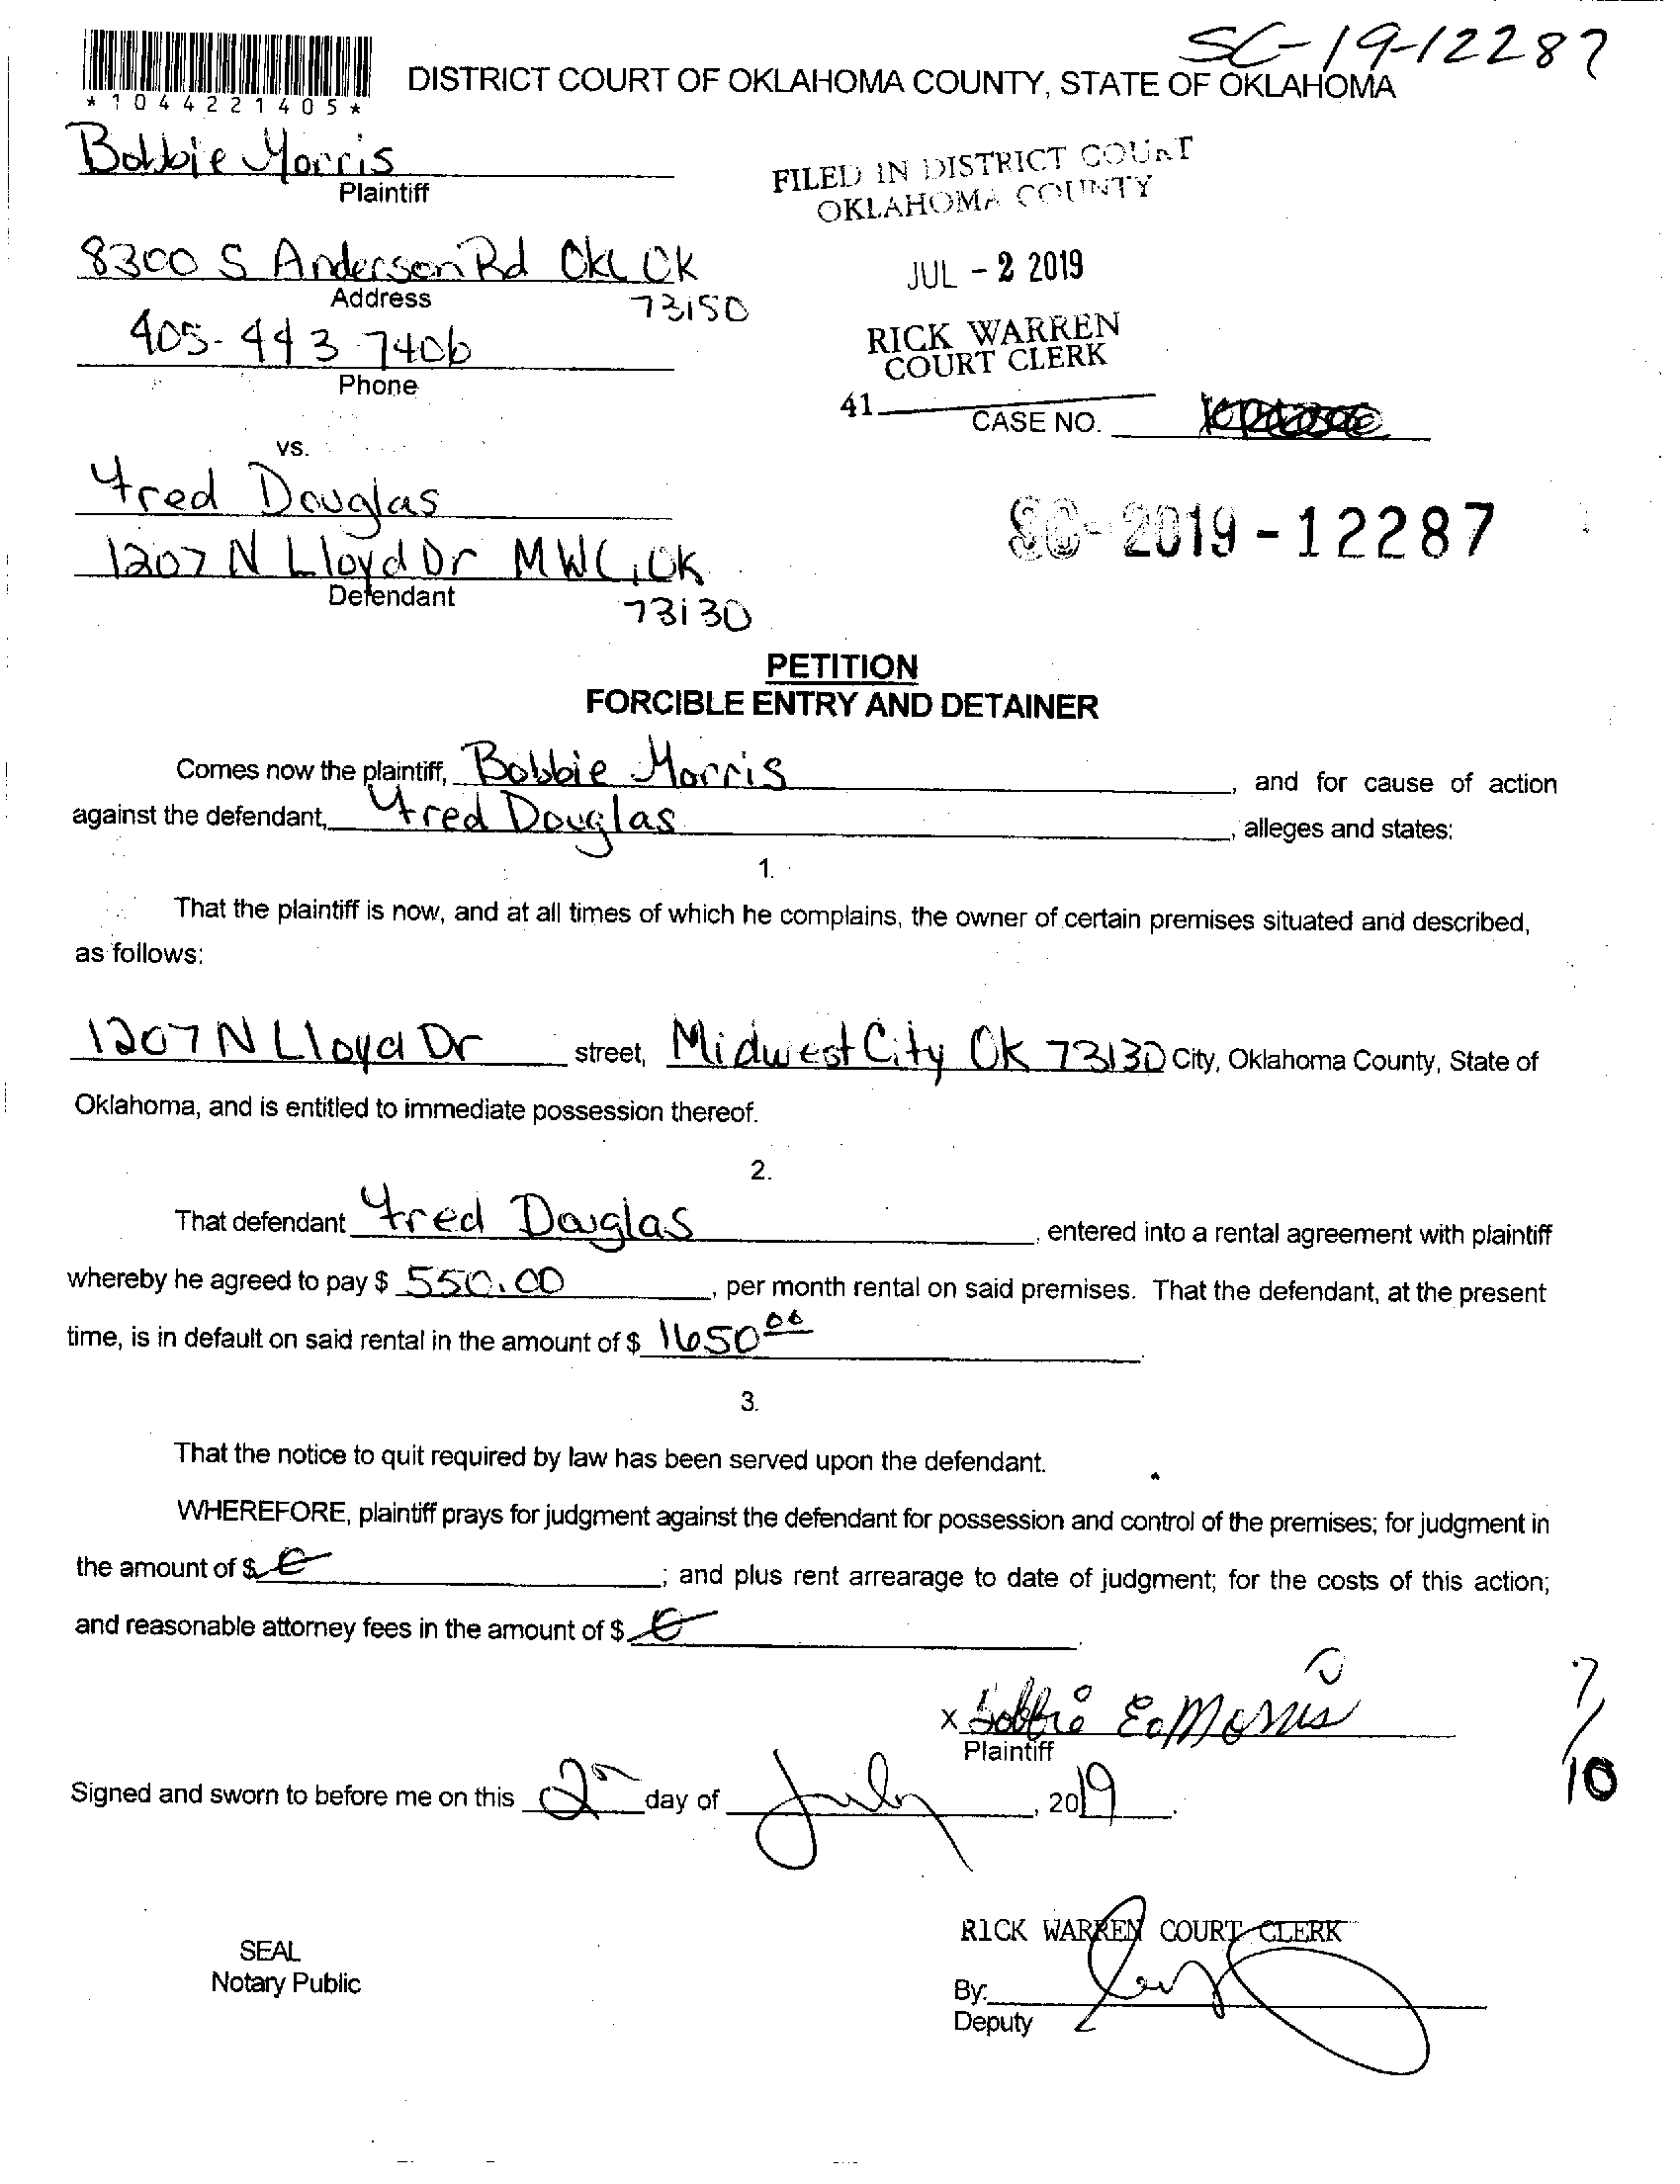 SC-19-12287
*1044221405*
DISTRICT COURT OF OKLAHOMA COUNTY, STATE OF OKLAHOMA
Bobbie Morris
Plaintiff
FILED IN DISTRICT COURT
OKLAHOMA COUNTY
8300 S Anderson Rd OKC OK
Address
73150
JUL - 2 2019
405-443-7406
Phone
RICK WARREN
COURT CLERK
41
CASE NO.
vs.
Fred Douglas
1207 N Lloyd Dr MWC, OK
Defendant
73130
SC-2019-12287
PETITION
FORCIBLE ENTRY AND DETAINER
Comes now the plaintiff, Bobbie Morris, and for cause of action
against the defendant, Fred Douglas, alleges and states:
1.
That the plaintiff is now, and at all times of which he complains, the owner of certain premises situated and described,
as follows:
1207 N Lloyd Dr street, Midwest City OK 73130 City, Oklahoma County, State of
Oklahoma, and is entitled to immediate possession thereof.
2.
That defendant Fred Douglas, entered into a rental agreement with plaintiff
whereby he agreed to pay $ 550.00, per month rental on said premises. That the defendant, at the present
time, is in default on said rental in the amount of $ 1650 00.
3.
That the notice to quit required by law has been served upon the defendant.
WHEREFORE, plaintiff prays for judgment against the defendant for possession and control of the premises; for judgment in
the amount of $ ; and plus rent arrearage to date of judgment; for the costs of this action;
and reasonable attorney fees in the amount of $ .
x Bobbie E. Morris
Plaintiff
7/10
Signed and sworn to before me on this 2 day of July, 2019.
RICK WARREN COURT CLERK
SEAL
Notary Public
By:
Deputy